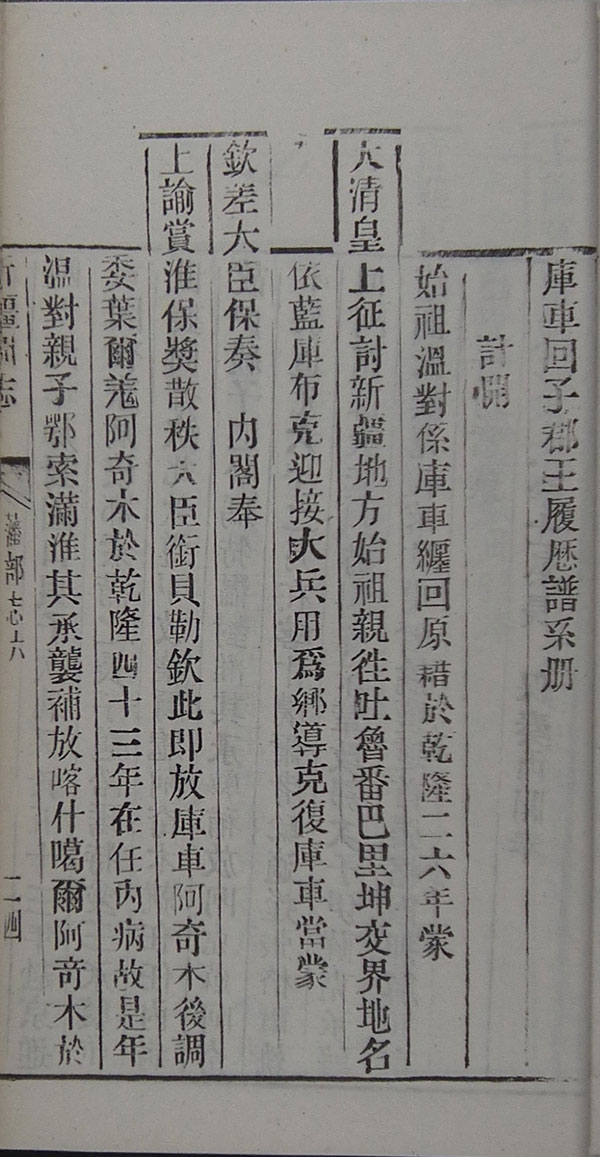 庫車回子郡王履歷譜系册
計開
始祖溫對係庫車纏回原籍於乾隆二六年蒙
大清皇上征討新疆地方始祖親徃吐魯番巴里坤交界地名
依藍庫布克迎接大兵用爲鄉導克復庫車當蒙
欽差大臣保奏　內閣奉
上諭賞准保獎散秩大臣銜貝勒欽此即放庫車阿奇木後調
委葉爾羌阿奇木於乾隆四十三年在任內病故是年
溫對親子鄂索滿准其承襲補放喀什噶爾阿奇木於
新疆圖志
藩部志六
二四